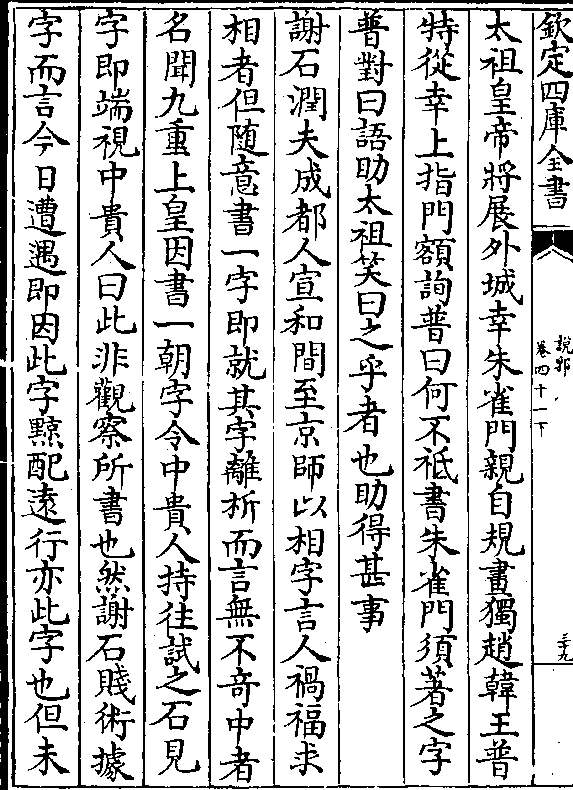 欽定四庫全書
說郛
卷四十一下
三十九
太祖皇帝將展外城幸朱雀門親自規畫獨趙韓王普
特從幸上指門額詢普曰何不祗書朱雀門須著之字
普對曰語助太祖笑曰之乎者也助得甚事
謝石潤夫成都人宣和間至京師以相字言人禍福求
相者但随意書一字即就其字離析而言無不奇中者
名聞九重上皇因書一朝字令中貴人持往試之石見
字即端視中貴人曰此非觀察所書也然謝石賤術據
字而言今日遭遇即因此字黥配逺行亦此字也但未